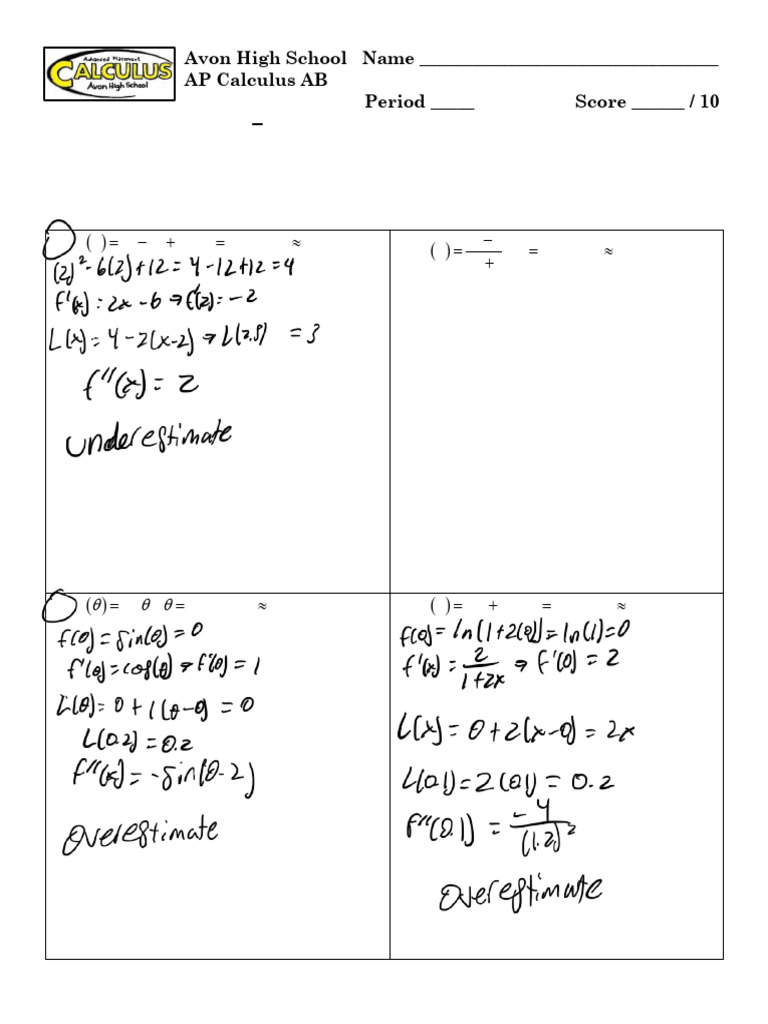 Advanced Placement
CALCULUS
Avon High School
Avon High School Name ______________________________
AP Calculus AB
Period _____ Score ______ / 10
–
( )= − + = ≈
(2)² - 6(2) + 12 = 4 - 12 + 12 = 4
f'(x) = 2x - 6 ⇒ f'(2) = -2
L(x) = 4 - 2(x-2) ⇒ L(2.5) = 3
f''(x) = 2
underestimate
( )= − / + = ≈
(θ)= θ θ = ≈
f(0) = sin(0) = 0
f'(θ) = cos(θ) ⇒ f'(0) = 1
L(θ) = 0 + 1(θ-0) = θ
L(0.2) = 0.2
f''(x) = -sin(0.2)
overestimate
( )= + = ≈
f(0) = ln(1+2(0)) = ln(1) = 0
f'(x) = 2/(1+2x) ⇒ f'(0) = 2
L(x) = 0 + 2(x-0) = 2x
L(0.1) = 2(0.1) = 0.2
f''(0.1) = -4/(1.2)²
overestimate